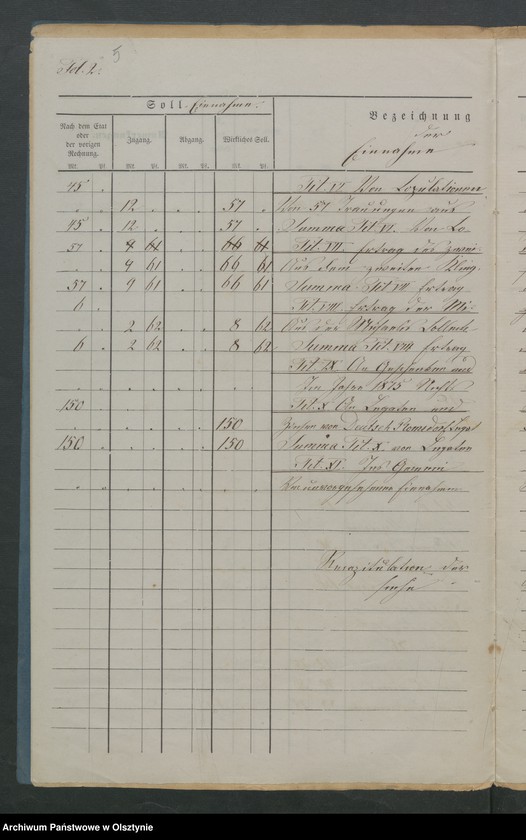 Fol. 2. 5
Soll. Einnahme.
Bezeichnung
der
Einnahme
Nach dem Etat
oder
der vorigen
Rechnung.
Zugang.
Abgang.
Wirkliches Soll.
Mt. Pf. Mt. Pf. Mt. Pf. Mt. Pf.
45 . Tit. VI. Von
. . 12 . . . 57 . Von 57 Trauungen aus
45 . 12 . . . 57 . Summa Tit. VI. Von
57 . 8 61 . . 66 61 Tit. VII. Ertrag des zwei-
. . 9 61 . . 66 61 Aus dem zweiten Kling-
57 . 9 61 . . 66 61 Summa Tit VII Ertrag
6 Tit. VIII. Ertrag der Mi-
. . 2 62 . . 8 62 Aus der Michaelis Collecte
6 . 2 62 . . 8 62 Summa Tit. VIII Ertrag
Tit. IX An Geschenken und
. . . . . . . . Im Jahre 1875 Nichts
150 . Tit. X An Legaten und
. . . . . . 150 Zinsen von Deutsch
150 . . . . . 150 Summa Tit. X. von Legaten
Tit. XI. Ins Gemein
. . . . . . . . Einnahmen
Recapitulation der
Archiwum Państwowe w Olsztynie